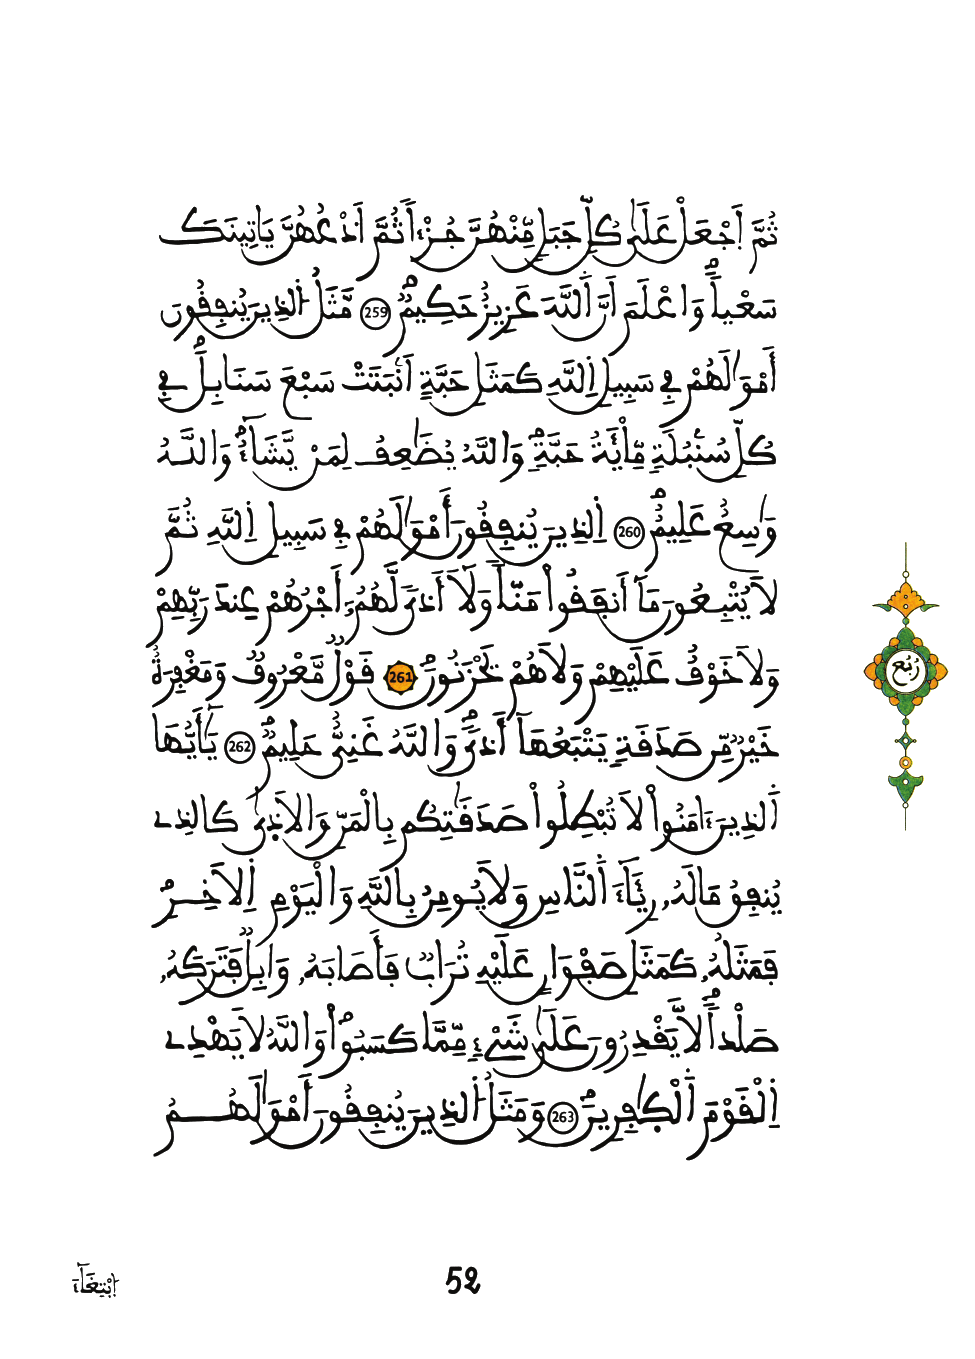 ثُمَّ اَجْعَلْ عَلَىٰ كُلِّ جَبَلٍ مِّنْهُنَّ جُزْءاً ثُمَّ اَدْعُهُنَّ يَاتِينَكَ
سَعْياً وَاعْلَمَ اَنَّ اَللَّهَ عَزِيزٌ حَكِيمٌ 259 مَّثَلُ اُلذِينَ يُنفِقُونَ
أَمْوَٰلَهُمْ فِي سَبِيلِ اِللَّهِ كَمَثَلِ حَبَّةٍ اَنۢبَتَتْ سَبْعَ سَنَابِلَ فِي
كُلِّ سُنۢبُلَةٍ مِّاْئَةُ حَبَّةٍ وَاللَّهُ يُضَٰعِفُ لِمَنْ يَّشَآءُ وَاللَّهُ
وَٰسِعٌ عَلِيمٌ 260 اِلذِينَ يُنفِقُونَ أَمْوَٰلَهُمْ فِي سَبِيلِ اِللَّهِ ثُمَّ
لاَ يُتْبِعُونَ مَآ أَنفَقُواْ مَنّاً وَلَآ أَذىً لَّهُمُۥٓ أَجْرُهُمْ عِندَ رَبِّهِمْ
وَلاَ خَوْفٌ عَلَيْهِمْ وَلاَ هُمْ يَحْزَنُونَ 261 قَوْلٌ مَّعْرُوفٌ وَمَغْفِرَةٌ
خَيْرٌ مِّن صَدَقَةٍ يَتْبَعُهَآ أَذىً وَاللَّهُ غَنِيٌّ حَلِيمٌ 262 يَٰٓأَيُّهَا
اَلذِينَ ءَامَنُواْ لاَ تُبْطِلُواْ صَدَقَٰتِكُم بِالْمَنِّ وَالاَذ۪يٰ كَالذِے
يُنفِقُ مَالَهُۥ رِئَآءَ اَلنَّاسِ وَلاَ يُومِنُ بِاللَّهِ وَالْيَوْمِ اِلاَخِرِ
فَمَثَلُهُۥ كَمَثَلِ صَفْوَانٍ عَلَيْهِ تُرَابٌ فَأَصَابَهُۥ وَابِلٌ فَتَرَكَهُۥ
صَلْداً لاَّ يَقْدِرُونَ عَلَىٰ شَيْءٍ مِّمَّا كَسَبُواْ وَاللَّهُ لاَ يَهْدِے
اِلْقَوْمَ اَلْكٰفِرِينَ 263 وَمَثَلُ اُلذِينَ يُنفِقُونَ أَمْوَٰلَهُمُ
رُبُع
اِبْتِغَآءَ
52